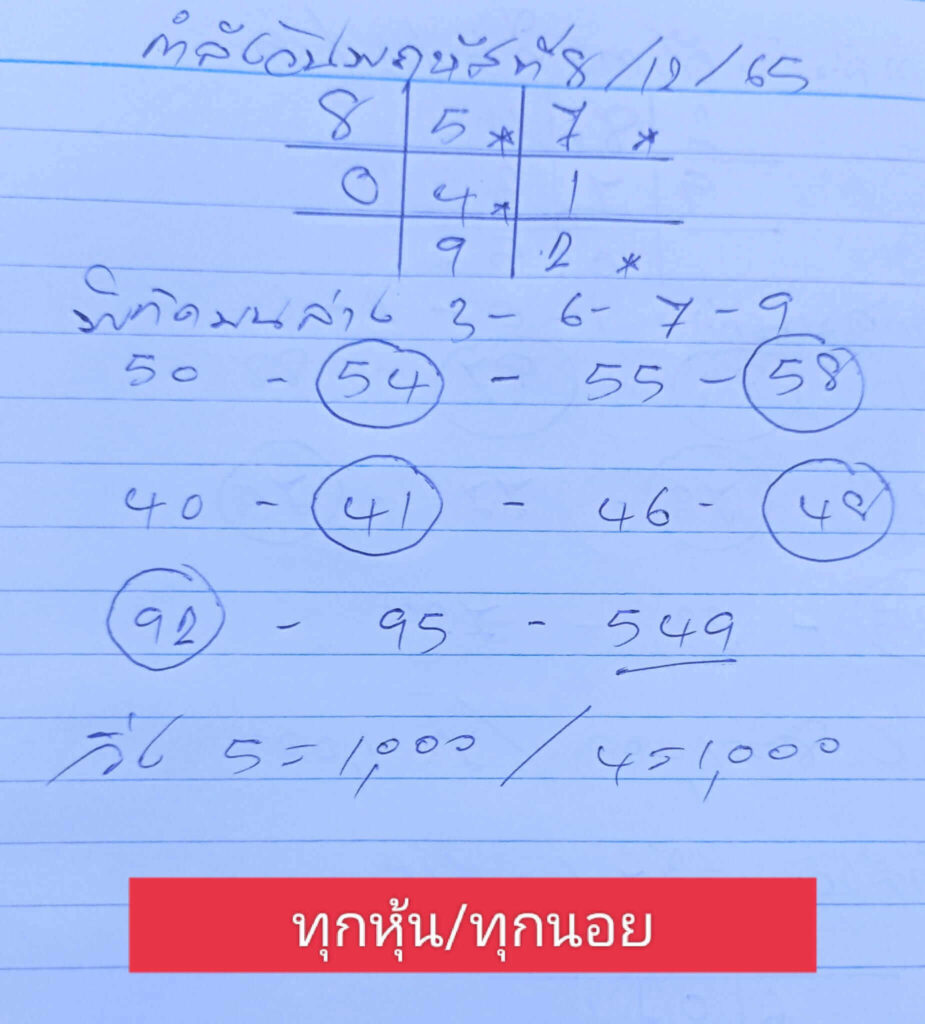 กำลังวันพฤหัสที่ 8/12/65
8 5* 7*
0 4* 1
9 2*
พิกัดบนล่าง 3 - 6 - 7 - 9
50 - 54 - 55 - 58
40 - 41 - 46 - 48
92 - 95 - 549
วิ่ง 5=1,000 / 4=1,000
ทุกหุ้น/ทุกนอย